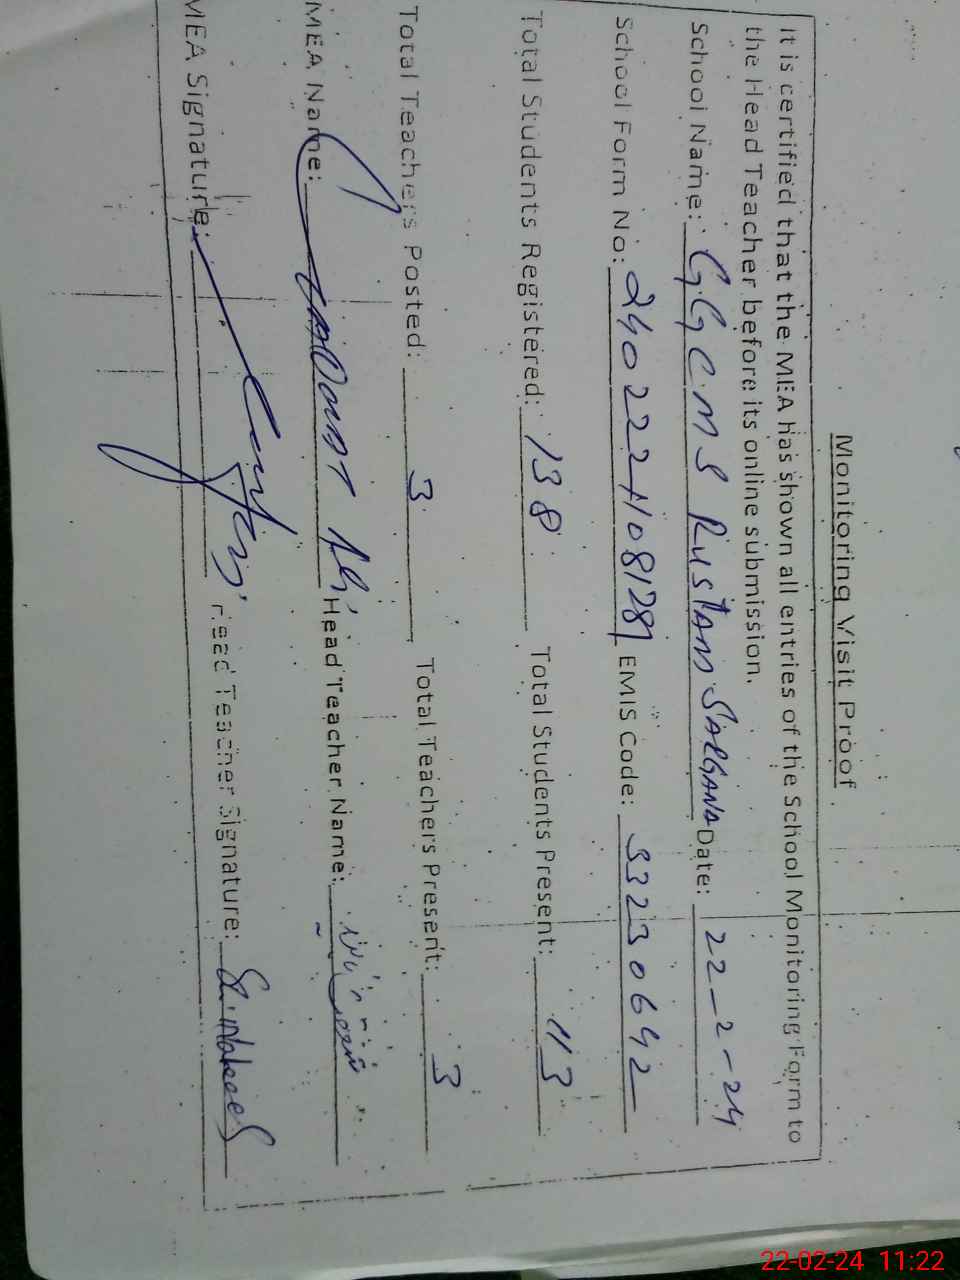 Monitoring Visit Proof
It is certified that the MEA has shown all entries of the School Monitoring Form to
the Head Teacher before its online submission.
School Name: G.G.C.M.S Rustam SARGANA Date: 22-2-24
School Form No: EMIS Code: 33230642
Total Students Registered: 138 Total Students Present: 113
Total Teachers Posted: 3 Total Teachers Present: 3
MEA Name: Head Teacher Name:
MEA Signature: Head Teacher Signature:
22-02-24 11:22